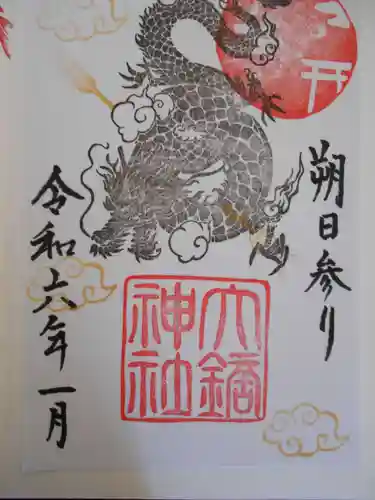 朔日参り
大鏑
神社
令和六年一月